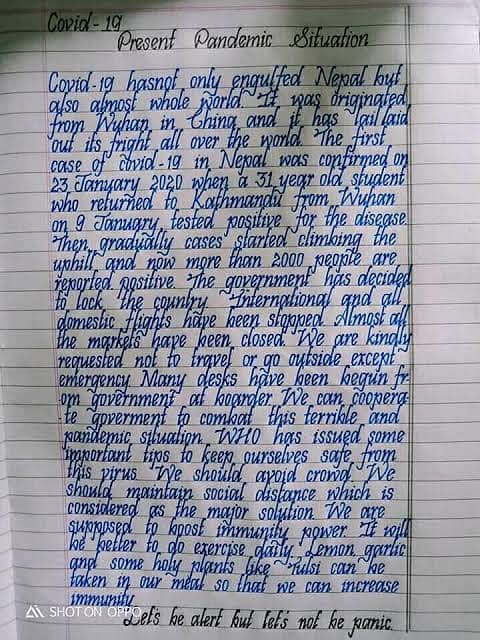 Covid-19
Present Pandemic Situation
Covid-19 hasnot only engulfed Nepal but
also almost whole world. It was originated
from Wuhan in China and it has laid
out its fright all over the world. The first
case of covid-19 in Nepal was confirmed on
23 January 2020 when a 31 year old student
who returned to Kathmandu from Wuhan
on 9 January tested positive for the disease.
Then gradually cases started climbing the
uphill and now more than 2000 people are
reported positive. The government has decided
to lock the country. International and all
domestic flights have been stopped. Almost all
the markets have been closed. We are kingly
requested not to travel or go outside except
emergency. Many desks have been begun fr-
om government at boarder. We can coopera-
te goverment to combat this terrible and
pandemic situation. WHO has issued some
important tips to keep ourselves safe from
this virus. We should avoid crowd. We
should maintain social distance which is
considered as the major solution. We are
supposed to boost immunity power. It will
be better to do exercise daily. Lemon, garlic
and some holy plants like Tulsi can be
taken in our meal so that we can increase
immunity.
Let's be alert but let's not be panic.
SHOT ON OPPO